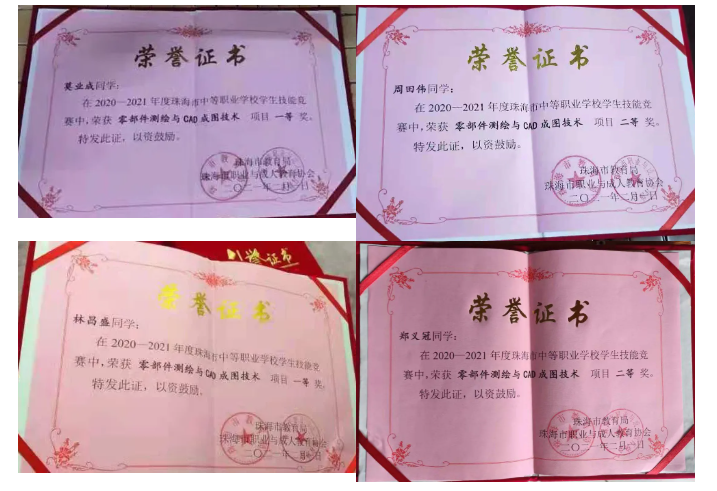 荣誉证书
莫业成同学：
在2020—2021年度珠海市中等职业学校学生技能竞
赛中，荣获 零部件测绘与CAD成图技术 项目 一等 奖。
特发此证，以资鼓励。
珠海市教育局
珠海市职业与成人教育协会
二〇二一年二月一日
荣誉证书
周田伟同学：
在2020—2021年度珠海市中等职业学校学生技能竞
赛中，荣获 零部件测绘与CAD成图技术 项目 二等 奖。
特发此证，以资鼓励。
珠海市教育局
珠海市职业与成人教育协会
二〇二一年二月一日
誉证书
荣誉证书
林昌盛同学：
在2020—2021年度珠海市中等职业学校学生技能竞
赛中，荣获 零部件测绘与CAD成图技术 项目 一等 奖。
特发此证，以资鼓励。
珠海市教育局
珠海市职业与成人教育协会
二〇二一年二月一日
荣誉证书
郑义冠同学：
在2020—2021年度珠海市中等职业学校学生技能竞
赛中，荣获 零部件测绘与CAD成图技术 项目 二等 奖。
特发此证，以资鼓励。
珠海市教育局
珠海市职业与成人教育协会
二〇二一年二月一日